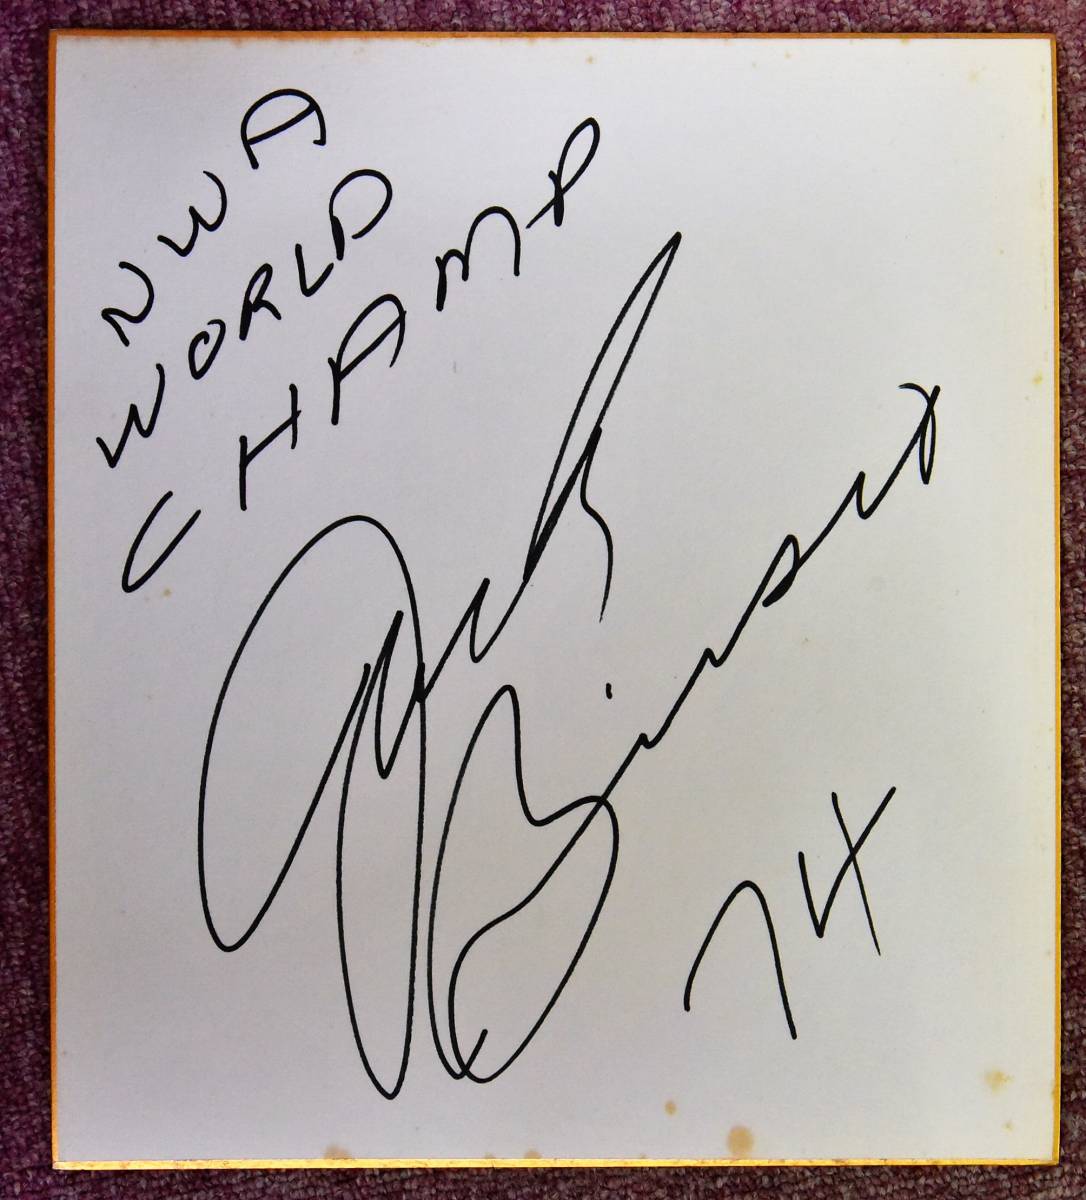 NWA
WORLD
CHAMP
Jack Brisco
74